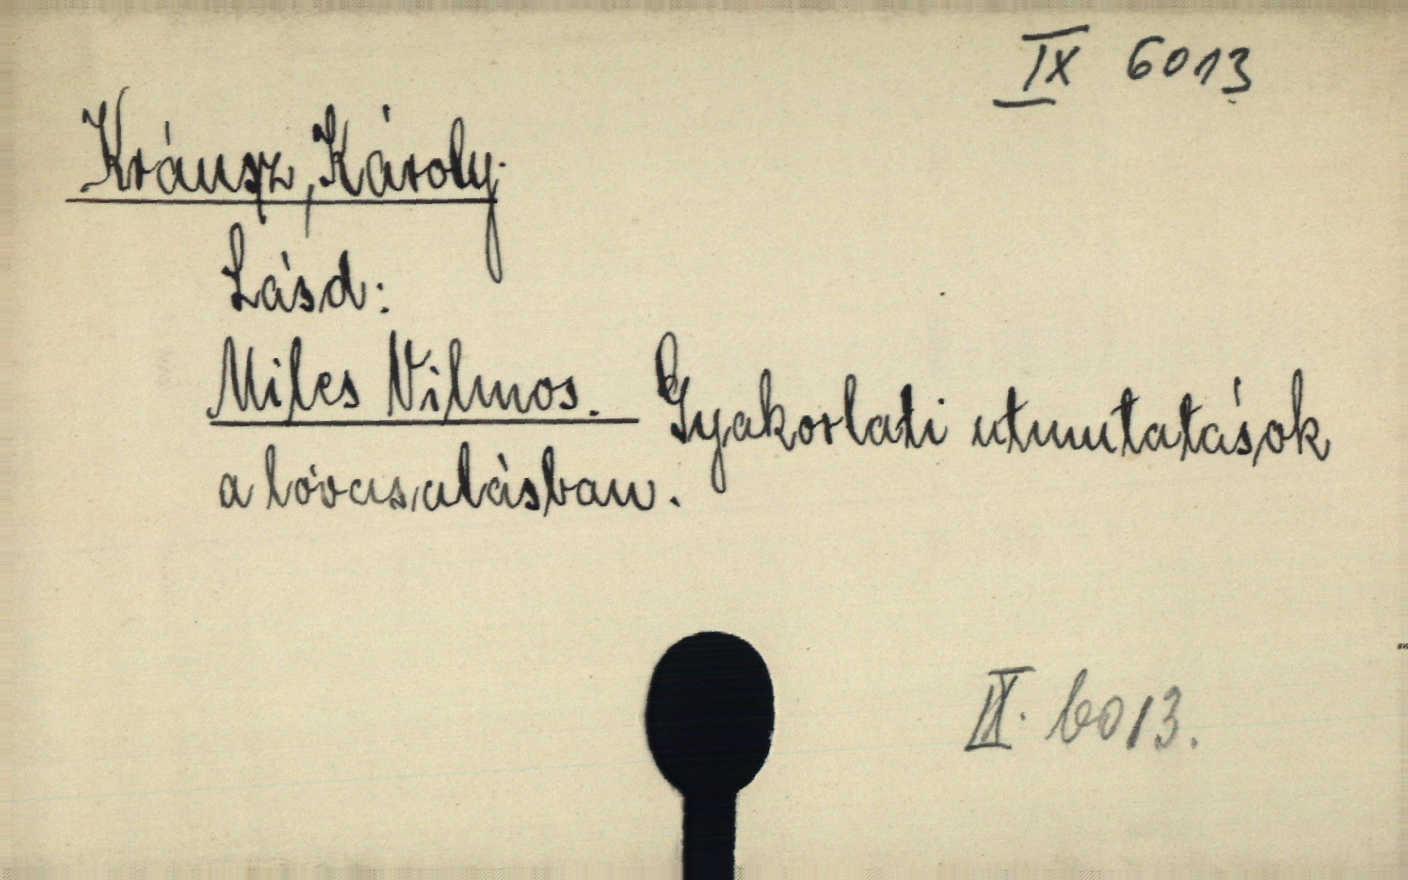 IX 6013
Kráusz, Károly.
Lásd:
Miles Vilmos. Gyakorlati utmutatások
a lóvasalásban.
IX. 6013.